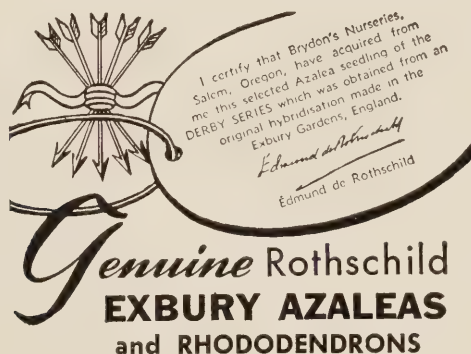 I certify that Brydon's Nurseries,
Salem, Oregon, have acquired from
me this selected Azalea seedling of the
DERBY SERIES which was obtained from an
original hybridisation made in the
Exbury Gardens, England.
Edmund de Rothschild
Édmund de Rothschild
Genuine Rothschild
EXBURY AZALEAS
and RHODODENDRONS